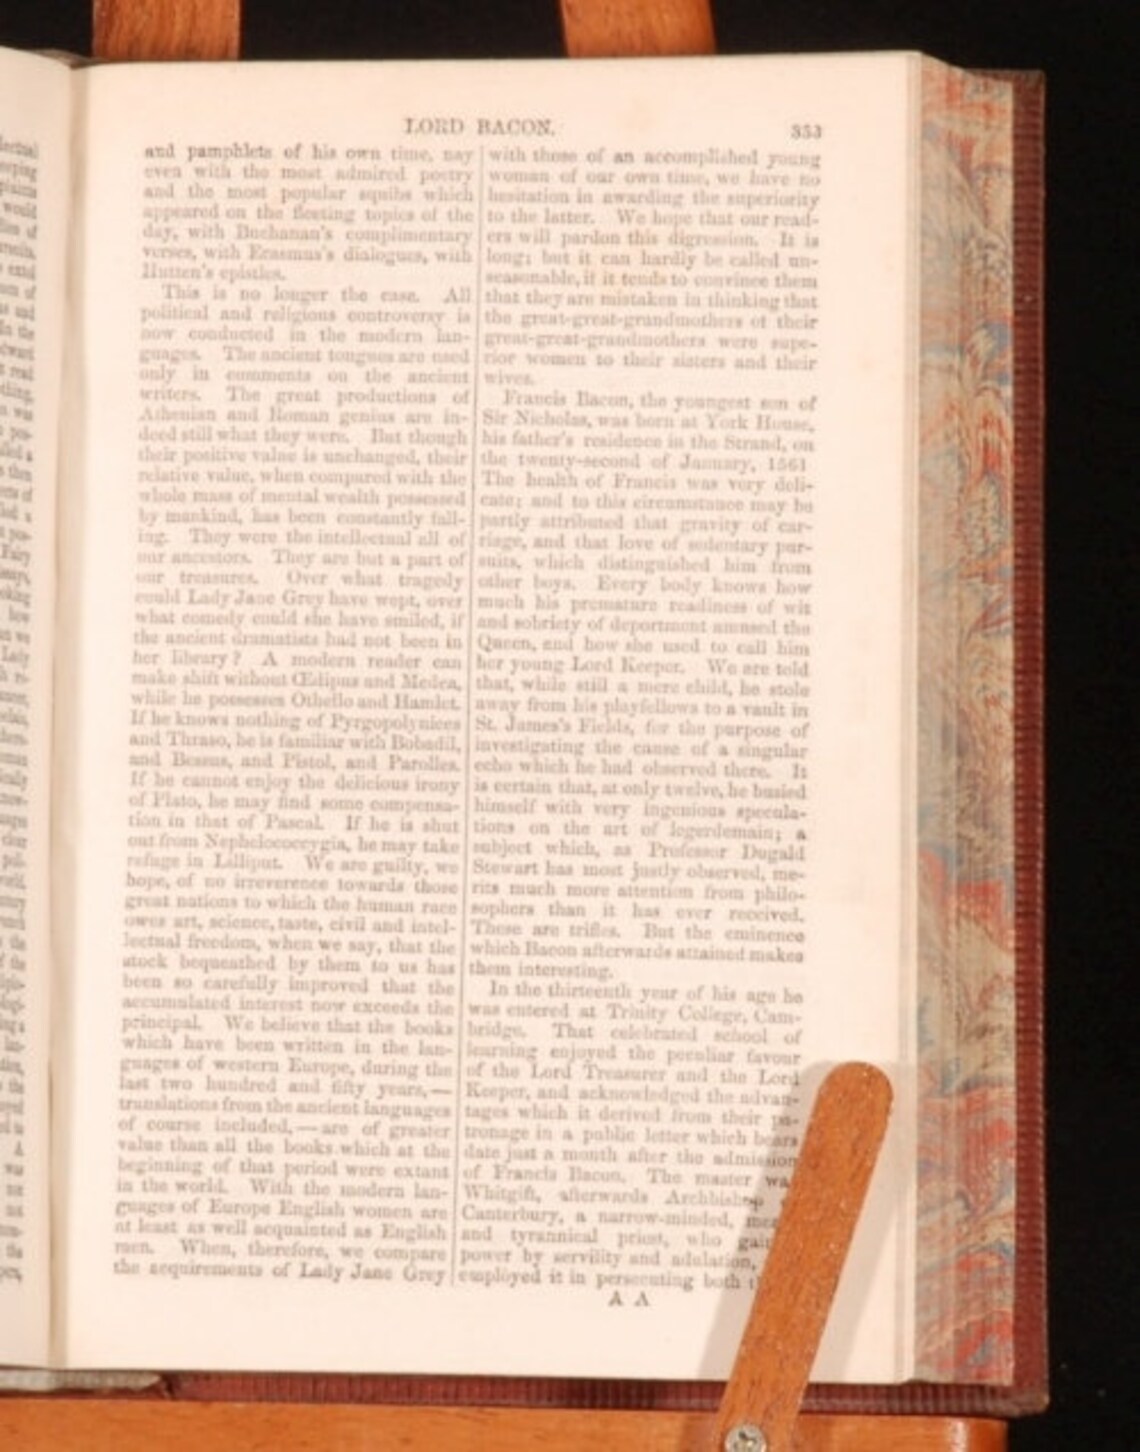 LORD BACON.
353
and pamphlets of his own time, nay
even with the most admired poetry
and the most popular squibs which
appeared on the fleeting topics of the
day, with Buchanan's complimentary
verses, with Erasmus's dialogues, with
Hutten's epistles.
This is no longer the case. All
political and religious controversy is
now conducted in the modern lan-
guages. The ancient tongues are used
only in comments on the ancient
writers. The great productions of
Athenian and Roman genius are in-
deed still what they were. But though
their positive value is unchanged, their
relative value, when compared with the
whole mass of mental wealth possessed
by mankind, has been constantly fall-
ing. They were the intellectual all of
our ancestors. They are but a part of
our treasures. Over what tragedy
could Lady Jane Grey have wept, over
what comedy could she have smiled, if
the ancient dramatists had not been in
her library? A modern reader can
make shift without Œdipus and Medea,
while he possesses Othello and Hamlet.
If he knows nothing of Pyrgopolynices
and Thraso, he is familiar with Bobadil,
and Bessus, and Pistol, and Parolles.
If he cannot enjoy the delicious irony
of Plato, he may find some compensa-
tion in that of Pascal. If he is shut
out from Nephelococcygia, he may take
refuge in Lilliput. We are guilty, we
hope, of no irreverence towards those
great nations to which the human race
owes art, science, taste, civil and intel-
lectual freedom, when we say, that the
stock bequeathed by them to us has
been so carefully improved that the
accumulated interest now exceeds the
principal. We believe that the books
which have been written in the lan-
guages of western Europe, during the
last two hundred and fifty years,—
translations from the ancient languages
of course included,—are of greater
value than all the books which at the
beginning of that period were extant
in the world. With the modern lan-
guages of Europe English women are
at least as well acquainted as English
men. When, therefore, we compare
the acquirements of Lady Jane Grey
with those of an accomplished young
woman of our own time, we have no
hesitation in awarding the superiority
to the latter. We hope that our read-
ers will pardon this digression. It is
long; but it can hardly be called un-
seasonable, if it tends to convince them
that they are mistaken in thinking that
the great-great-grandmothers of their
great-great-grandmothers were supe-
rior women to their sisters and their
wives.
Francis Bacon, the youngest son of
Sir Nicholas, was born at York House,
his father's residence in the Strand, on
the twenty-second of January, 1561
The health of Francis was very deli-
cate; and to this circumstance may be
partly attributed that gravity of car-
riage, and that love of sedentary pur-
suits, which distinguished him from
other boys. Every body knows how
much his premature readiness of wit
and sobriety of deportment amused the
Queen, and how she used to call him
her young Lord Keeper. We are told
that, while still a mere child, he stole
away from his playfellows to a vault in
St. James's Fields, for the purpose of
investigating the cause of a singular
echo which he had observed there. It
is certain that, at only twelve, he busied
himself with very ingenious specula-
tions on the art of legerdemain; a
subject which, as Professor Dugald
Stewart has most justly observed, me-
rits much more attention from philo-
sophers than it has ever received.
These are trifles. But the eminence
which Bacon afterwards attained makes
them interesting.
In the thirteenth year of his age he
was entered at Trinity College, Cam-
bridge. That celebrated school of
learning enjoyed the peculiar favour
of the Lord Treasurer and the Lord
Keeper, and acknowledged the advan-
tages which it derived from their pa-
tronage in a public letter which bears
date just a month after the admission
of Francis Bacon. The master wa
Whitgift, afterwards Archbishop
Canterbury, a narrow-minded, mea
and tyrannical priest, who gai
power by servility and adulation,
employed it in persecuting both t
A A